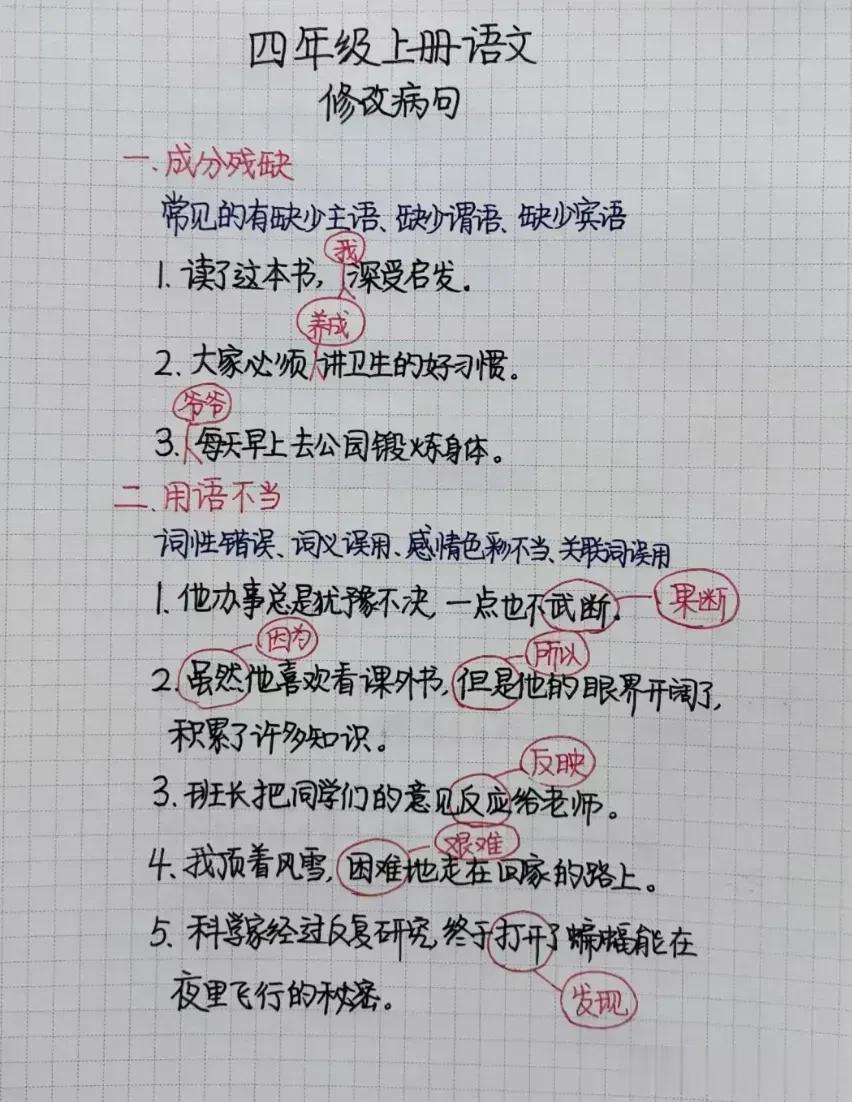 四年级上册语文
修改病句
一、成分残缺
常见的有缺少主语、缺少谓语、缺少宾语
我
1. 读了这本书，深受启发。
养成
2. 大家必须讲卫生的好习惯。
爷爷
3. 每天早上去公园锻炼身体。
二、用语不当
词性错误、词义误用、感情色彩不当、关联词误用
1. 他办事总是犹豫不决，一点也不武断。 果断
因为 所以
2. 虽然他喜欢看课外书，但是他的眼界开阔了，
积累了许多知识。
反映
3. 班长把同学们的意见反应给老师。
艰难
4. 我顶着风雪，困难地走在回家的路上。
5. 科学家经过反复研究，终于打开了蝙蝠能在
夜里飞行的秘密。
发现